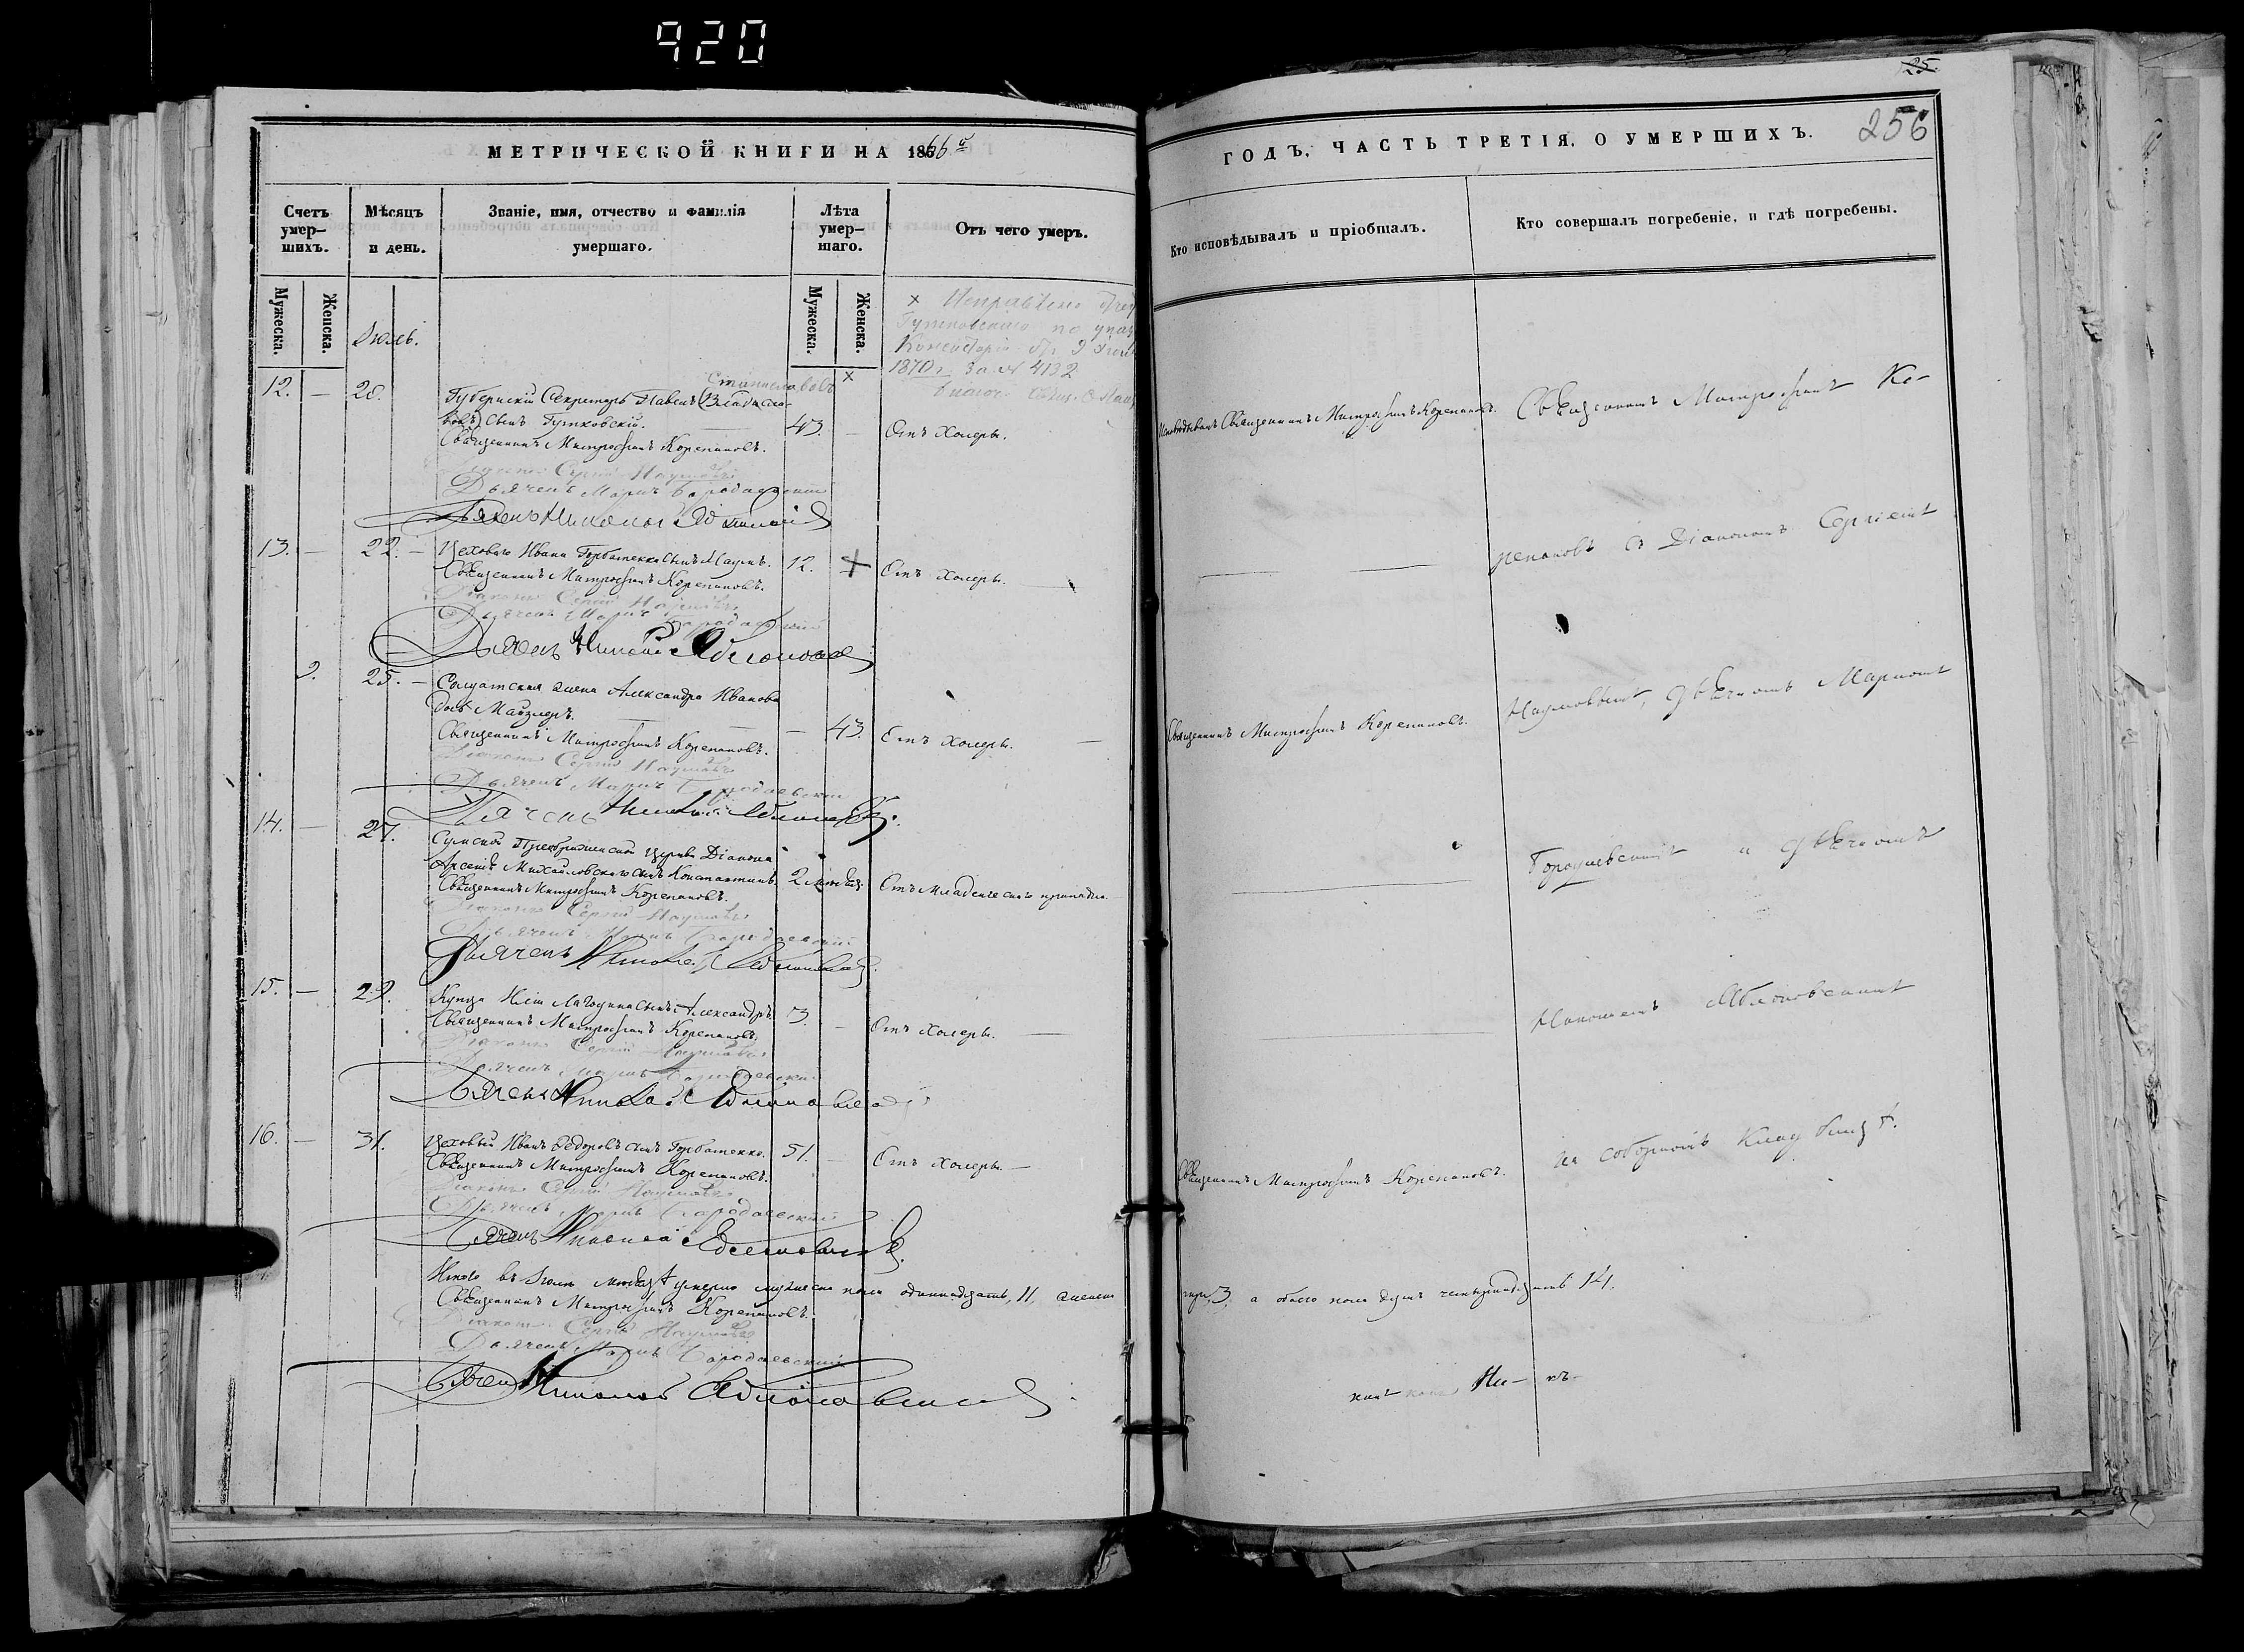 920
МЕТРИЧЕСКОЙ КНИГИ НА 1866 а
Счетъ умер-
шихъ.
Мѣсяцъ
и день.
Званіе, имя, отчество и фамилія
умершаго.
Лѣта
умер-
шаго.
Отъ чего умеръ.
Мужеска.
Женска.
Іюль.
Мужеска.
Женска.
× Исправлено
Гутковскаго по
Консисторіи 9
1870 г. за № 4132
Станиславовъ ×
12. — 20. Губернскій Секретарь Павелъ (Владисла-
вовъ) Сынъ Гутковскій. 43. — Отъ холеры.
Священникъ Митрофанъ Корепановъ.
Діаконъ Сергій Наумовъ
Дьячекъ Маркъ Бородаевскій
Дьячекъ Николай Яблоновскій
13. — 22. — Цеховаго Ивана Горбатенка сынъ Наумъ. 12. + Отъ холеры.
Священникъ Митрофанъ Корепановъ.
Діаконъ Сергій Наумовъ
Дьячекъ Маркъ Бородаевскій
Дьячекъ Николай Яблоновскій
2. 25. — Солдатская жена Александра Иванова
дочь Майзлеръ. — 43. Отъ холеры. —
Священникъ Митрофанъ Корепановъ.
Діаконъ Сергій Наумовъ
Дьячекъ Маркъ Бородаевскій
Дьячекъ Николай Яблоновскій
14. — 27. Сумской Преображенской церкви Діакона
Арсенія Михайловскаго сынъ Константинъ. 2 мѣсяц. Отъ младенческаго припадка.
Священникъ Митрофанъ Корепановъ.
Діаконъ Сергій Наумовъ
Дьячекъ Маркъ Бородаевскій
Дьячекъ Николай Яблоновскій
15. — 29. Купца сынъ Александръ 3. — Отъ холеры. —
Священникъ Митрофанъ Корепановъ.
Діаконъ Сергій Наумовъ
Дьячекъ Маркъ Бородаевскій
Дьячекъ Николай Яблоновскій
16. — 31. Цеховый Иванъ Федоровъ сынъ Горбатенко. 51. — Отъ холеры. —
Священникъ Митрофанъ Корепановъ.
Діаконъ Сергій Наумовъ
Дьячекъ Маркъ Бородаевскій
Дьячекъ Николай Яблоновскій
Итого въ Іюлѣ мѣсяцѣ умерло мужеска пола одинадцать, 11, женска
Священникъ Митрофанъ Корепановъ.
Діаконъ Сергій Наумовъ
Дьячекъ Маркъ Бородаевскій
Дьячекъ Николай Яблоновскій
25.
256
ГОДЪ, ЧАСТЬ ТРЕТІЯ, О УМЕРШИХЪ.
Кто исповѣдывалъ и пріобщалъ.
Кто совершалъ погребеніе, и гдѣ погребены.
Исповѣдывалъ Священникъ Митрофанъ Корепановъ.
Священникъ Митрофанъ Ко-
репановъ съ Діакономъ Сергіемъ
Священникъ Митрофанъ Корепановъ.
Наумовымъ, дьячкомъ Маркомъ
Бородаевскимъ и дьячкомъ
Николаемъ Яблоновскимъ
на соборномъ кладбищѣ.
Священникъ Митрофанъ Корепановъ.
три, 3, а обоего пола душъ четырнадцать 14.